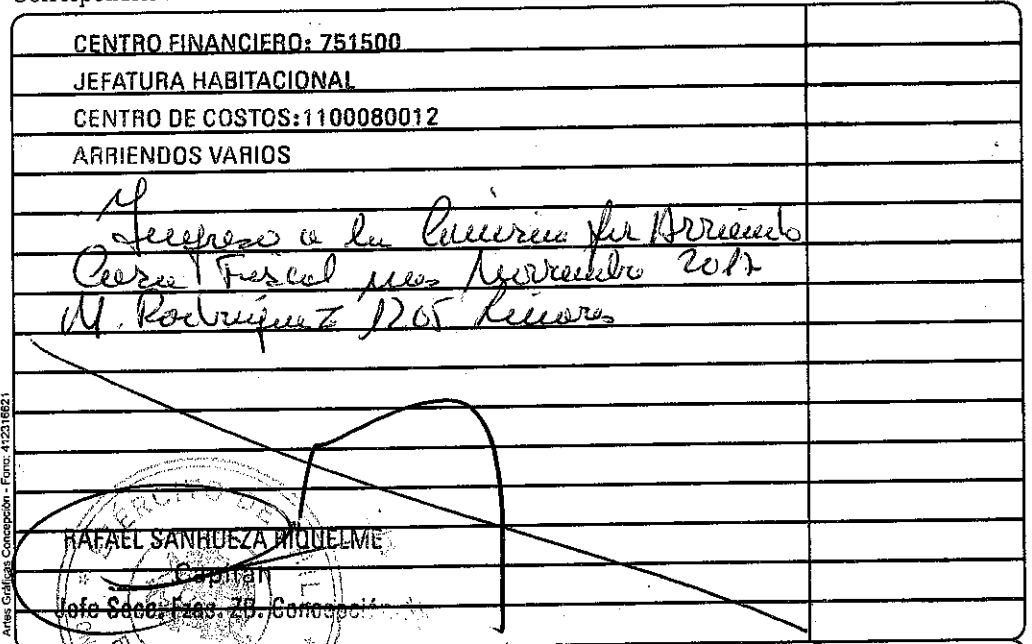 CENTRO FINANCIERO: 751500
JEFATURA HABITACIONAL
CENTRO DE COSTOS:1100080012
ARRIENDOS VARIOS
Ingreso a la por Arriendo
Casa Fiscal mes Noviembre 2017
M. Rodriguez 1205 Linares
EJERCITO DE
RAFAEL SANHUEZA RIQUELME
Capitán
Jefe Secc. Fzas. ZB. Concepción
Artes Gráficas Concepción - Fono: 412316621